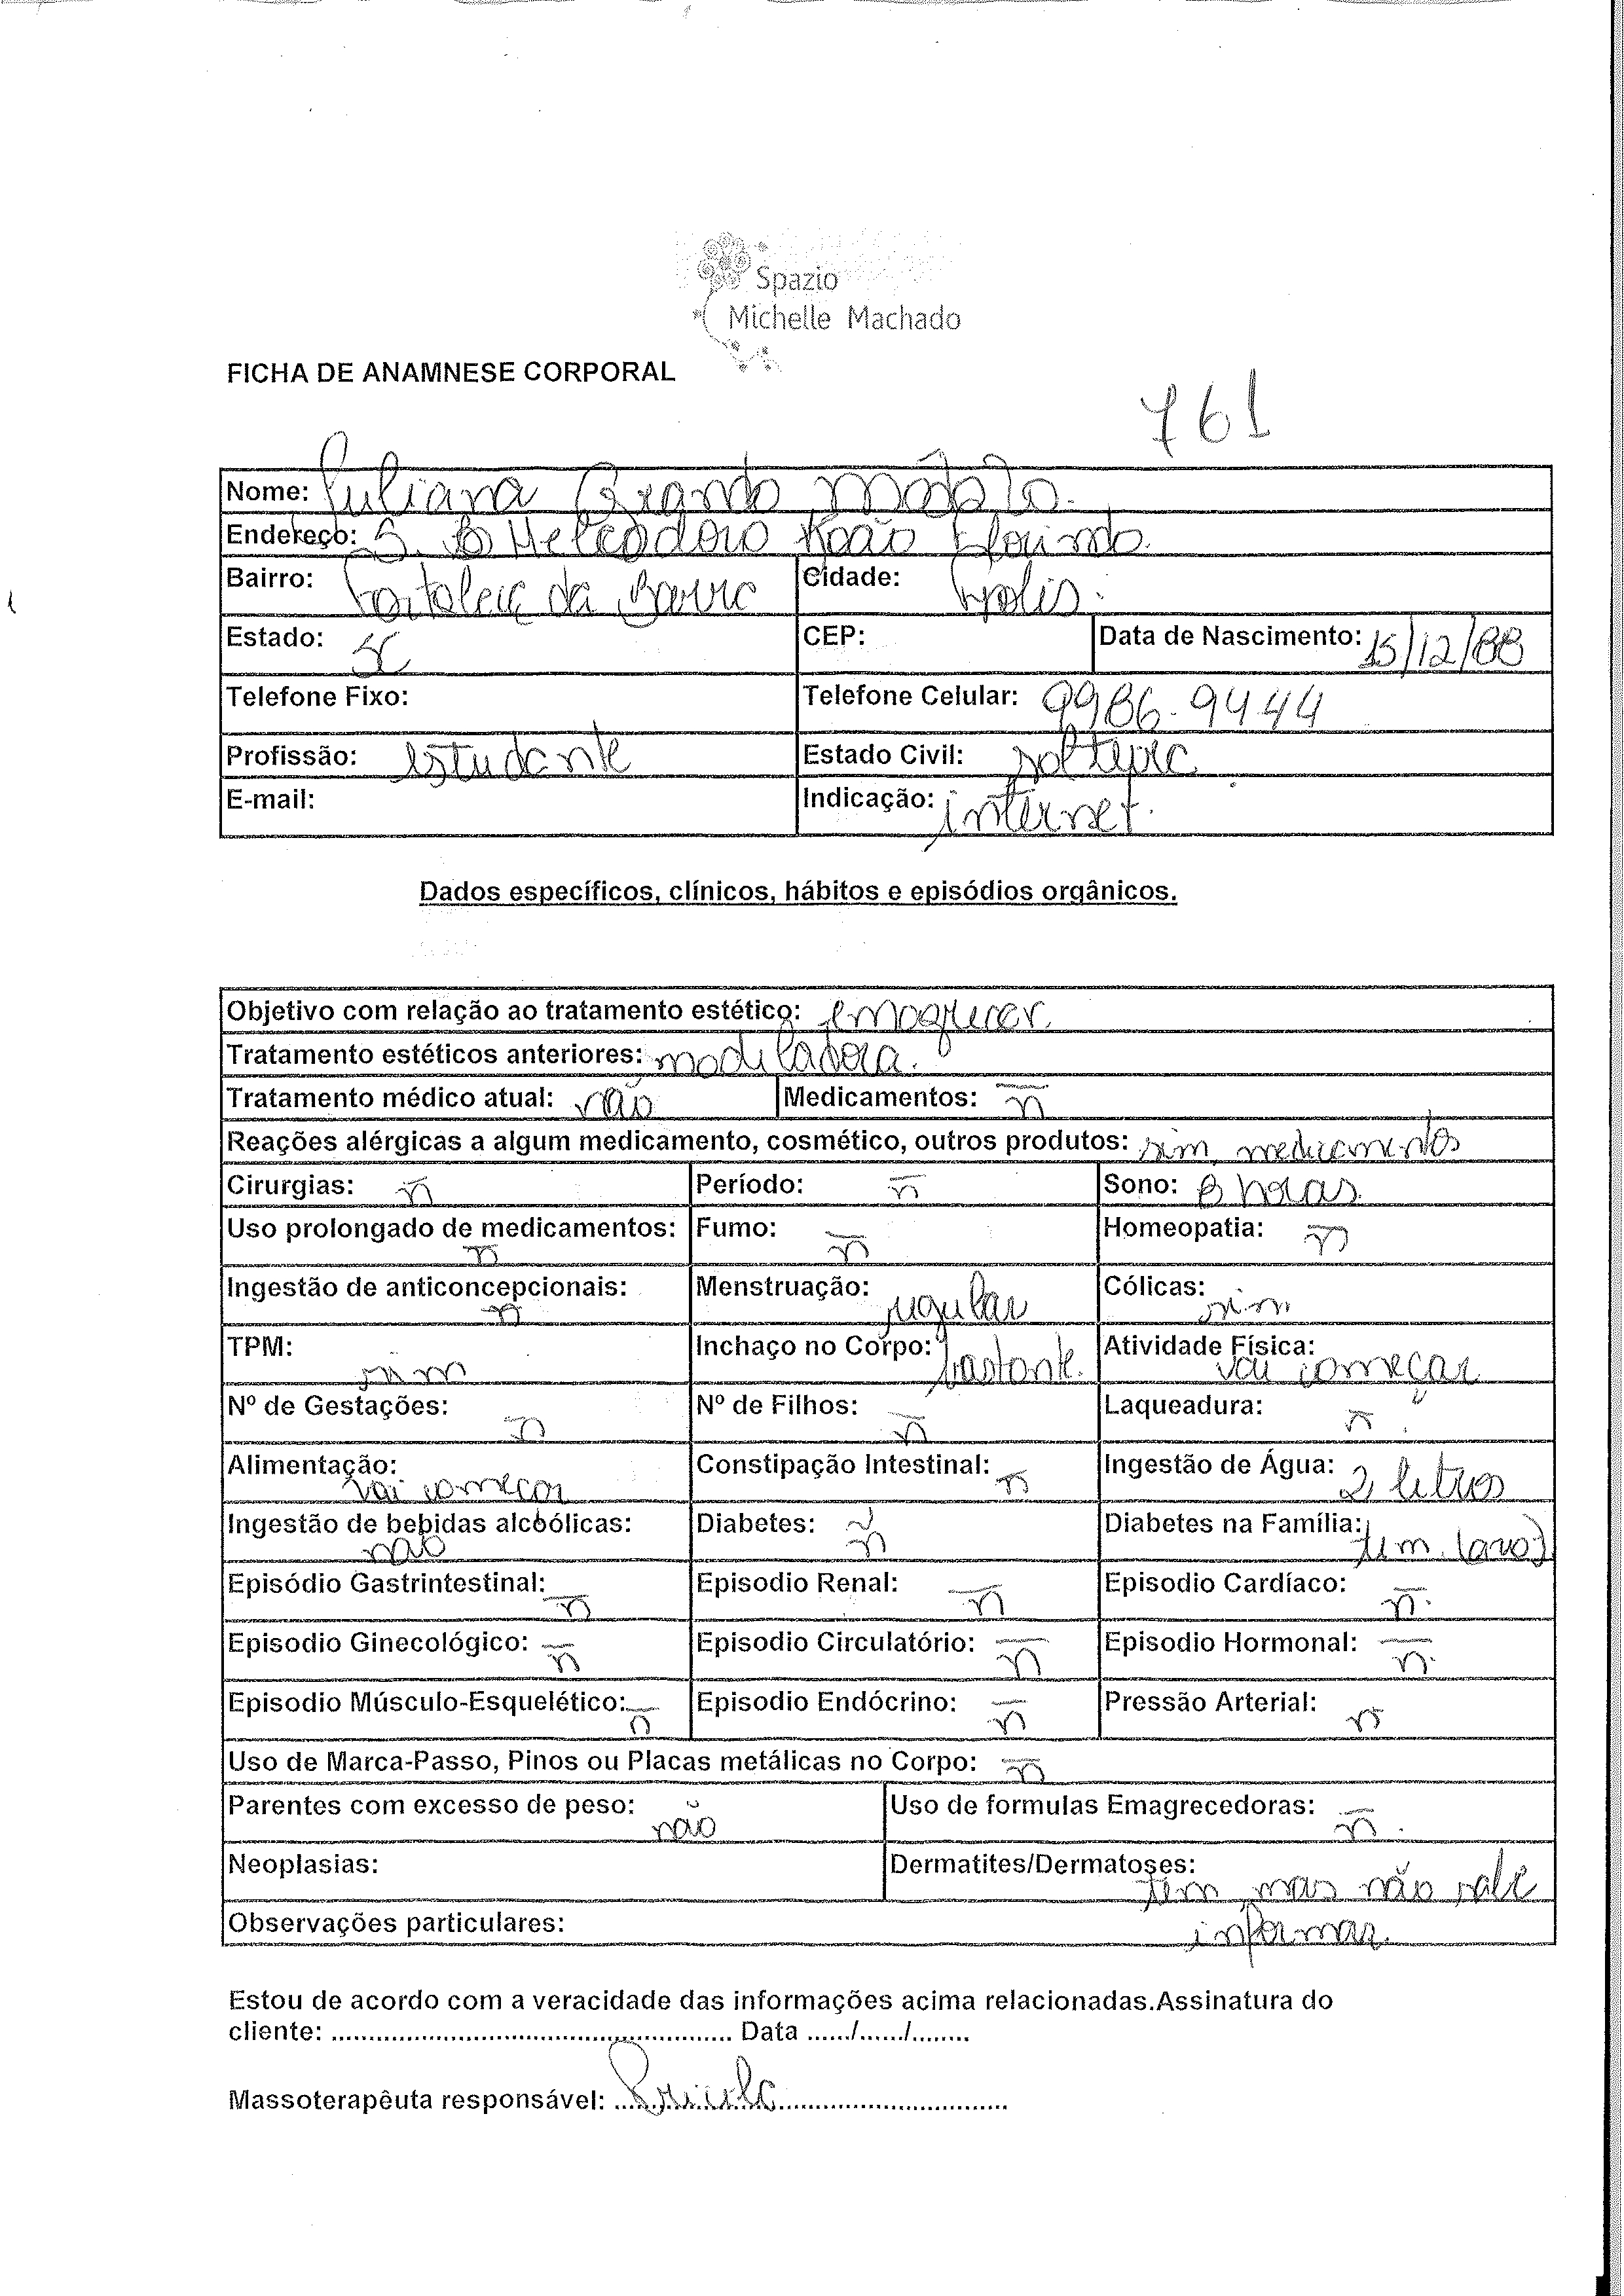 Spazio
Michelle Machado
FICHA DE ANAMNESE CORPORAL
761
Nome: Juliana
Endereço: S. Heleodoro João Florindo.
Bairro: Fortaleza da Barra Cidade: Fpolis.
Estado: SC CEP: Data de Nascimento: 15/12/88
Telefone Fixo: Telefone Celular: 9986-9444
Profissão: estudante Estado Civil: solteira
E-mail: Indicação: internet.
Dados específicos, clínicos, hábitos e episódios orgânicos.
Objetivo com relação ao tratamento estético: emagrecer.
Tratamento estéticos anteriores: modeladora.
Tratamento médico atual: não Medicamentos: ñ
Reações alérgicas a algum medicamento, cosmético, outros produtos: sim, medicamentos
Cirurgias: ñ Período: ñ Sono: 8 horas.
Uso prolongado de medicamentos: ñ Fumo: ñ Homeopatia: ñ
Ingestão de anticoncepcionais: ñ Menstruação: regular Cólicas: sim
TPM: sim Inchaço no Corpo: bastante. Atividade Física: vai começar
Nº de Gestações: ñ Nº de Filhos: ñ Laqueadura: ñ
Alimentação: vai começar Constipação Intestinal: ñ Ingestão de Água: 2 litros
Ingestão de bebidas alcoólicas: não Diabetes: ñ Diabetes na Família: tem. (avo)
Episódio Gastrintestinal: ñ Episodio Renal: ñ Episodio Cardíaco: ñ.
Episodio Ginecológico: ñ Episodio Circulatório: ñ Episodio Hormonal: ñ.
Episodio Músculo-Esquelético: ñ Episodio Endócrino: ñ Pressão Arterial: ñ
Uso de Marca-Passo, Pinos ou Placas metálicas no Corpo: ñ
Parentes com excesso de peso: não Uso de formulas Emagrecedoras: ñ.
Neoplasias: Dermatites/Dermatoses: tem, mas não sabe
Observações particulares: informar.
Estou de acordo com a veracidade das informações acima relacionadas.Assinatura do
cliente: ........................................................ Data ....../....../........
Massoterapêuta responsável: Priscila